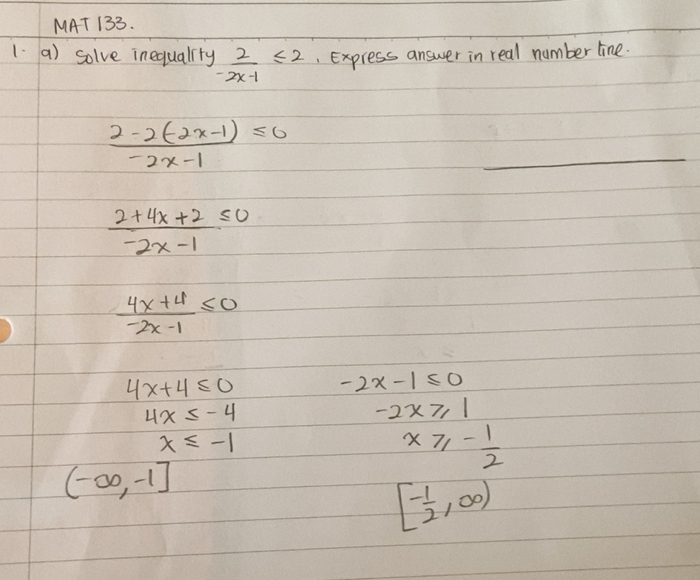 MAT 133.
1. a) Solve inequality 2/(-2x-1) ≤ 2. Express answer in real number line.
(2-2(-2x-1))/(-2x-1) ≤ 0
(2+4x+2)/(-2x-1) ≤ 0
(4x+4)/(-2x-1) ≤ 0
4x+4 ≤ 0
4x ≤ -4
x ≤ -1
(-∞, -1]
-2x-1 ≤ 0
-2x ≥ 1
x ≥ -1/2
[-1/2, ∞)